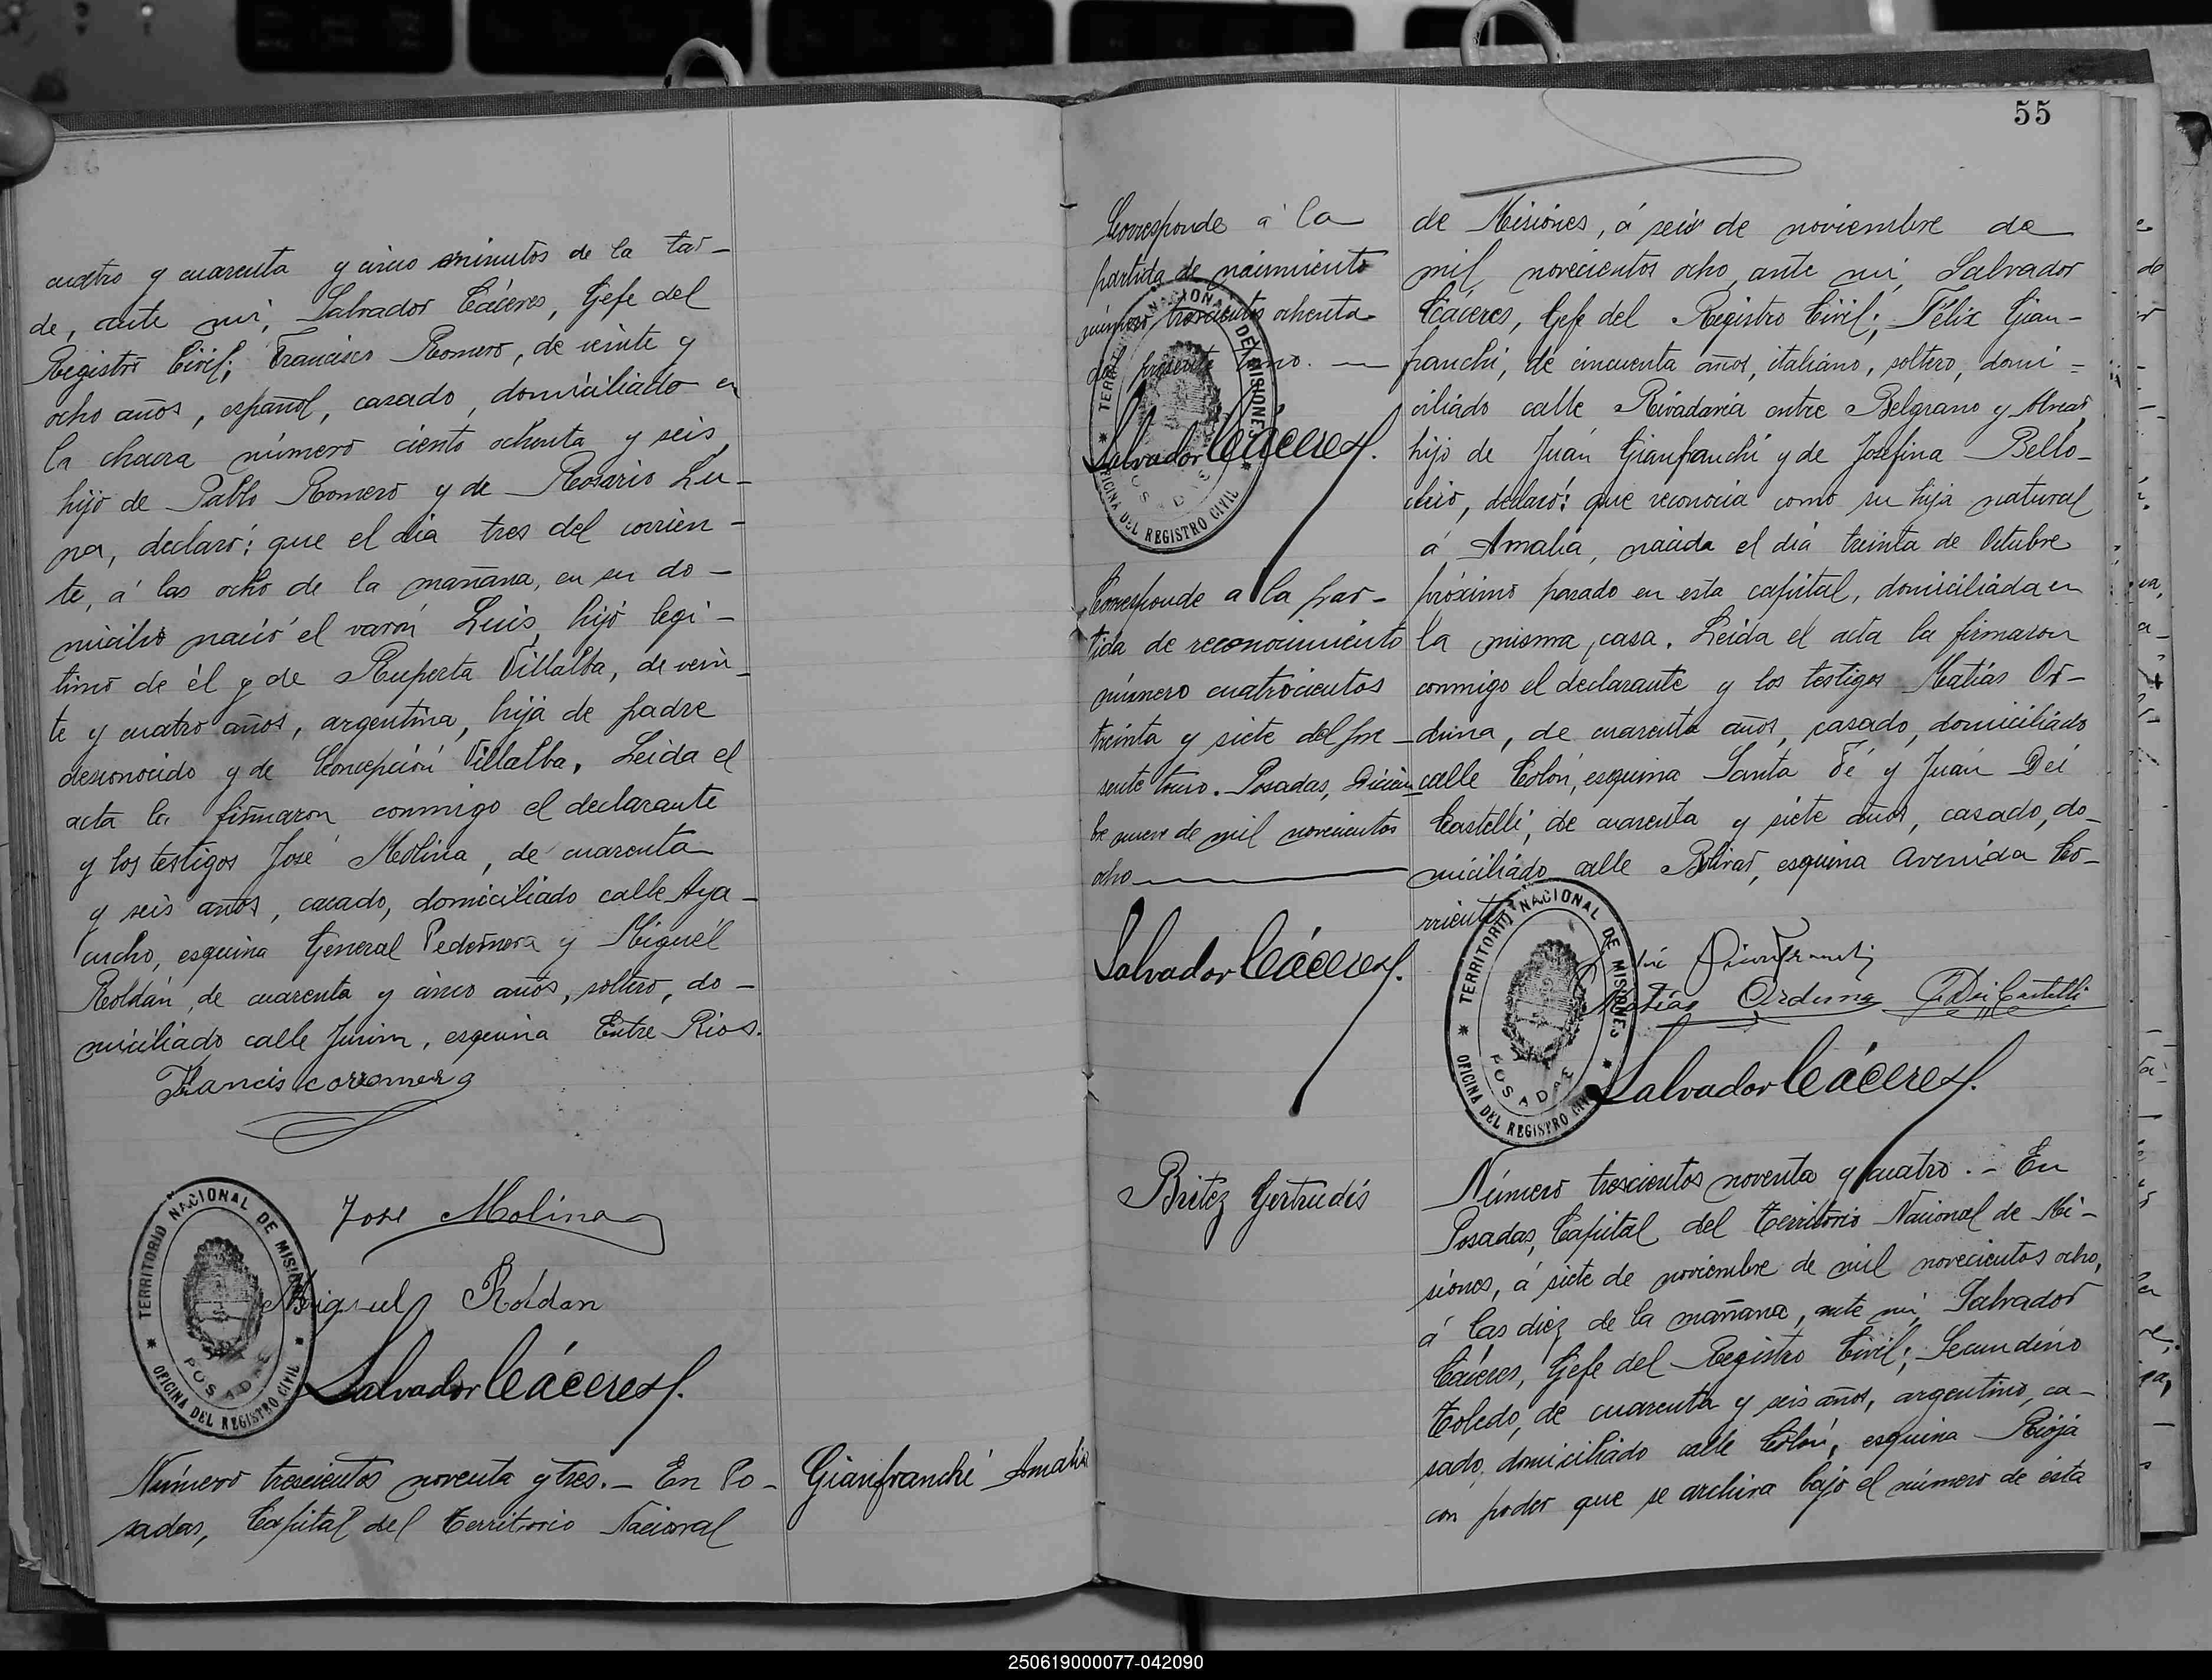 cuatro y cuarenta y cinco minutos de la tar-
de, ante mi, Salvador Cáceres, Gefe del
Registro Civil; Francisco Romero, de veinte y
ocho años, español, casado, domiciliado en
la chacra número ciento ochenta y seis,
hijo de Pablo Romero y de Rosario Lu-
na, declaró: que el dia tres del corrien-
te, á las ocho de la mañana, en su do-
micilio nació el varón Luis, hijo legi-
timo de él y de Ruperta Villalba, de vein-
te y cuatro años, argentina, hija de padre
desconocido y de Concepción Villalba. Leida el
acta la firmaron conmigo el declarante
y los testigos José Molina, de cuarenta
y seis años, casado, domiciliado calle Aya-
cucho, esquina General Pedernera y Miguél
Roldán, de cuarenta y cinco años, soltero, do-
miciliado calle Junin, esquina Entre Rios.
Francisco romero
Jose Molina
Miguel Roldan
Salvador Cáceres
TERRITORIO NACIONAL DE MISIONES
POSADAS
OFICINA DEL REGISTRO CIVIL
Número trescientos noventa y tres.- En Po-
sadas, Capital del Territorio Nacional
Gianfranchi Amalia
55
Corresponde á la
partida de nacimiento
número trescientos ochenta
del presente tomo.
Salvador Cáceres
TERRITORIO NACIONAL DE MISIONES
POSADAS
OFICINA DEL REGISTRO CIVIL
Corresponde a la par-
tida de reconocimiento
número cuatrocientos
treinta y siete del pre-
sente tomo. Posadas, Diciem-
bre nueve de mil novecientos
ocho
Salvador Cáceres
Britez Gertrudis
de Misiones, á seis de noviembre de
mil novecientos ocho, ante mi, Salvador
Cáceres, Gefe del Registro Civil; Félix Gian-
franchi, de cincuenta años, italiano, soltero, domi-
ciliado calle Rivadavia entre Belgrano y Alvear
hijo de Juán Gianfranchi y de Josefina Bello-
chio, declaró: que reconocia como su hija natural
á Amalia, nacida el dia treinta de Octubre
próximo pasado en esta capital, domiciliada en
la misma casa. Leida el acta la firmaron
conmigo el declarante y los testigos Matías Or-
duna, de cuarenta años, casado, domiciliado
calle Colón, esquina Santa Fé y Juán Dei
Castelli, de cuarenta y siete años, casado, do-
miciliado calle Bolivar, esquina Avenida Co-
rrientes
Gianfranchi
Matías Orduna J Dei Castelli
Salvador Cáceres
TERRITORIO NACIONAL DE MISIONES
POSADAS
OFICINA DEL REGISTRO CIVIL
Número trescientos noventa y cuatro.- En
Posadas, Capital del Territorio Nacional de Mi-
siones, á siete de noviembre de mil novecientos ocho,
á las diez de la mañana, ante mi, Salvador
Cáceres, Gefe del Registro Civil; Secundino
Toledo, de cuarenta y seis años, argentino, ca-
sado, domiciliado calle Colón, esquina Rioja
con poder que se archiva bajo el número de esta
250619000077-042090